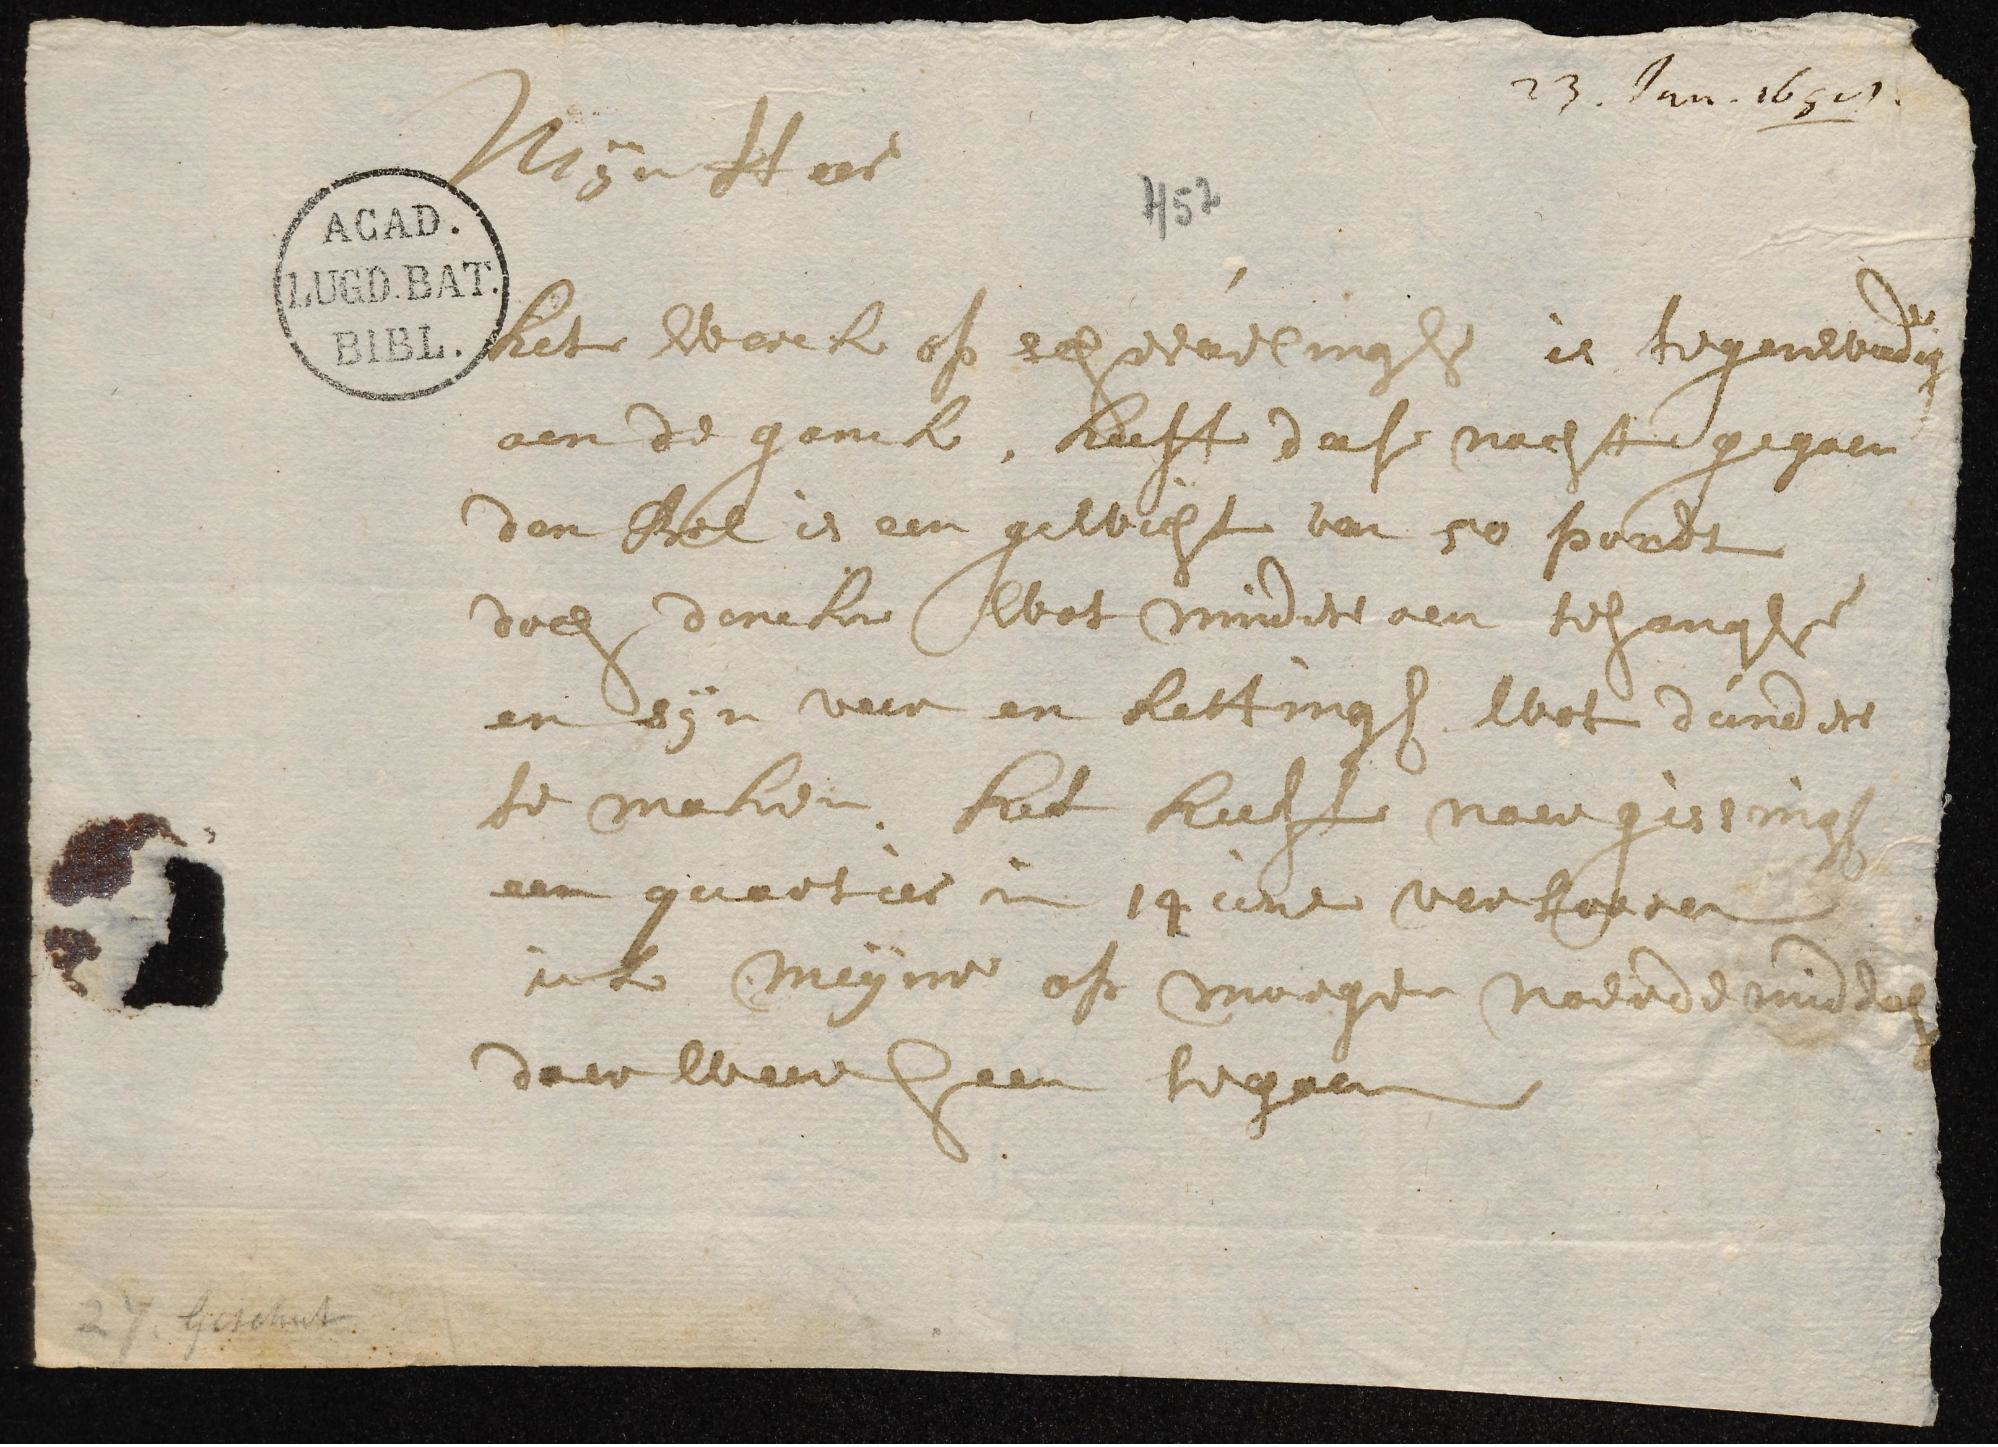 23. Jan. 1658.
Mijn Heer
452
ACAD.
LUGD. BAT.
BIBL.
het werck op scheveringhe is tegenwoordig
aen de ganck, heeft dese nacht gegaen
den is een gewicht van 50 pondt
doch dencke wat minder aen te hanghen
en sijn veer en kettingh wat dunder
te maken. het heeft naer gissingh
een quartier in 14 uure verlooren
ick meijne op morgen naer de middach
daer weer heen te gaen
27. Geschut